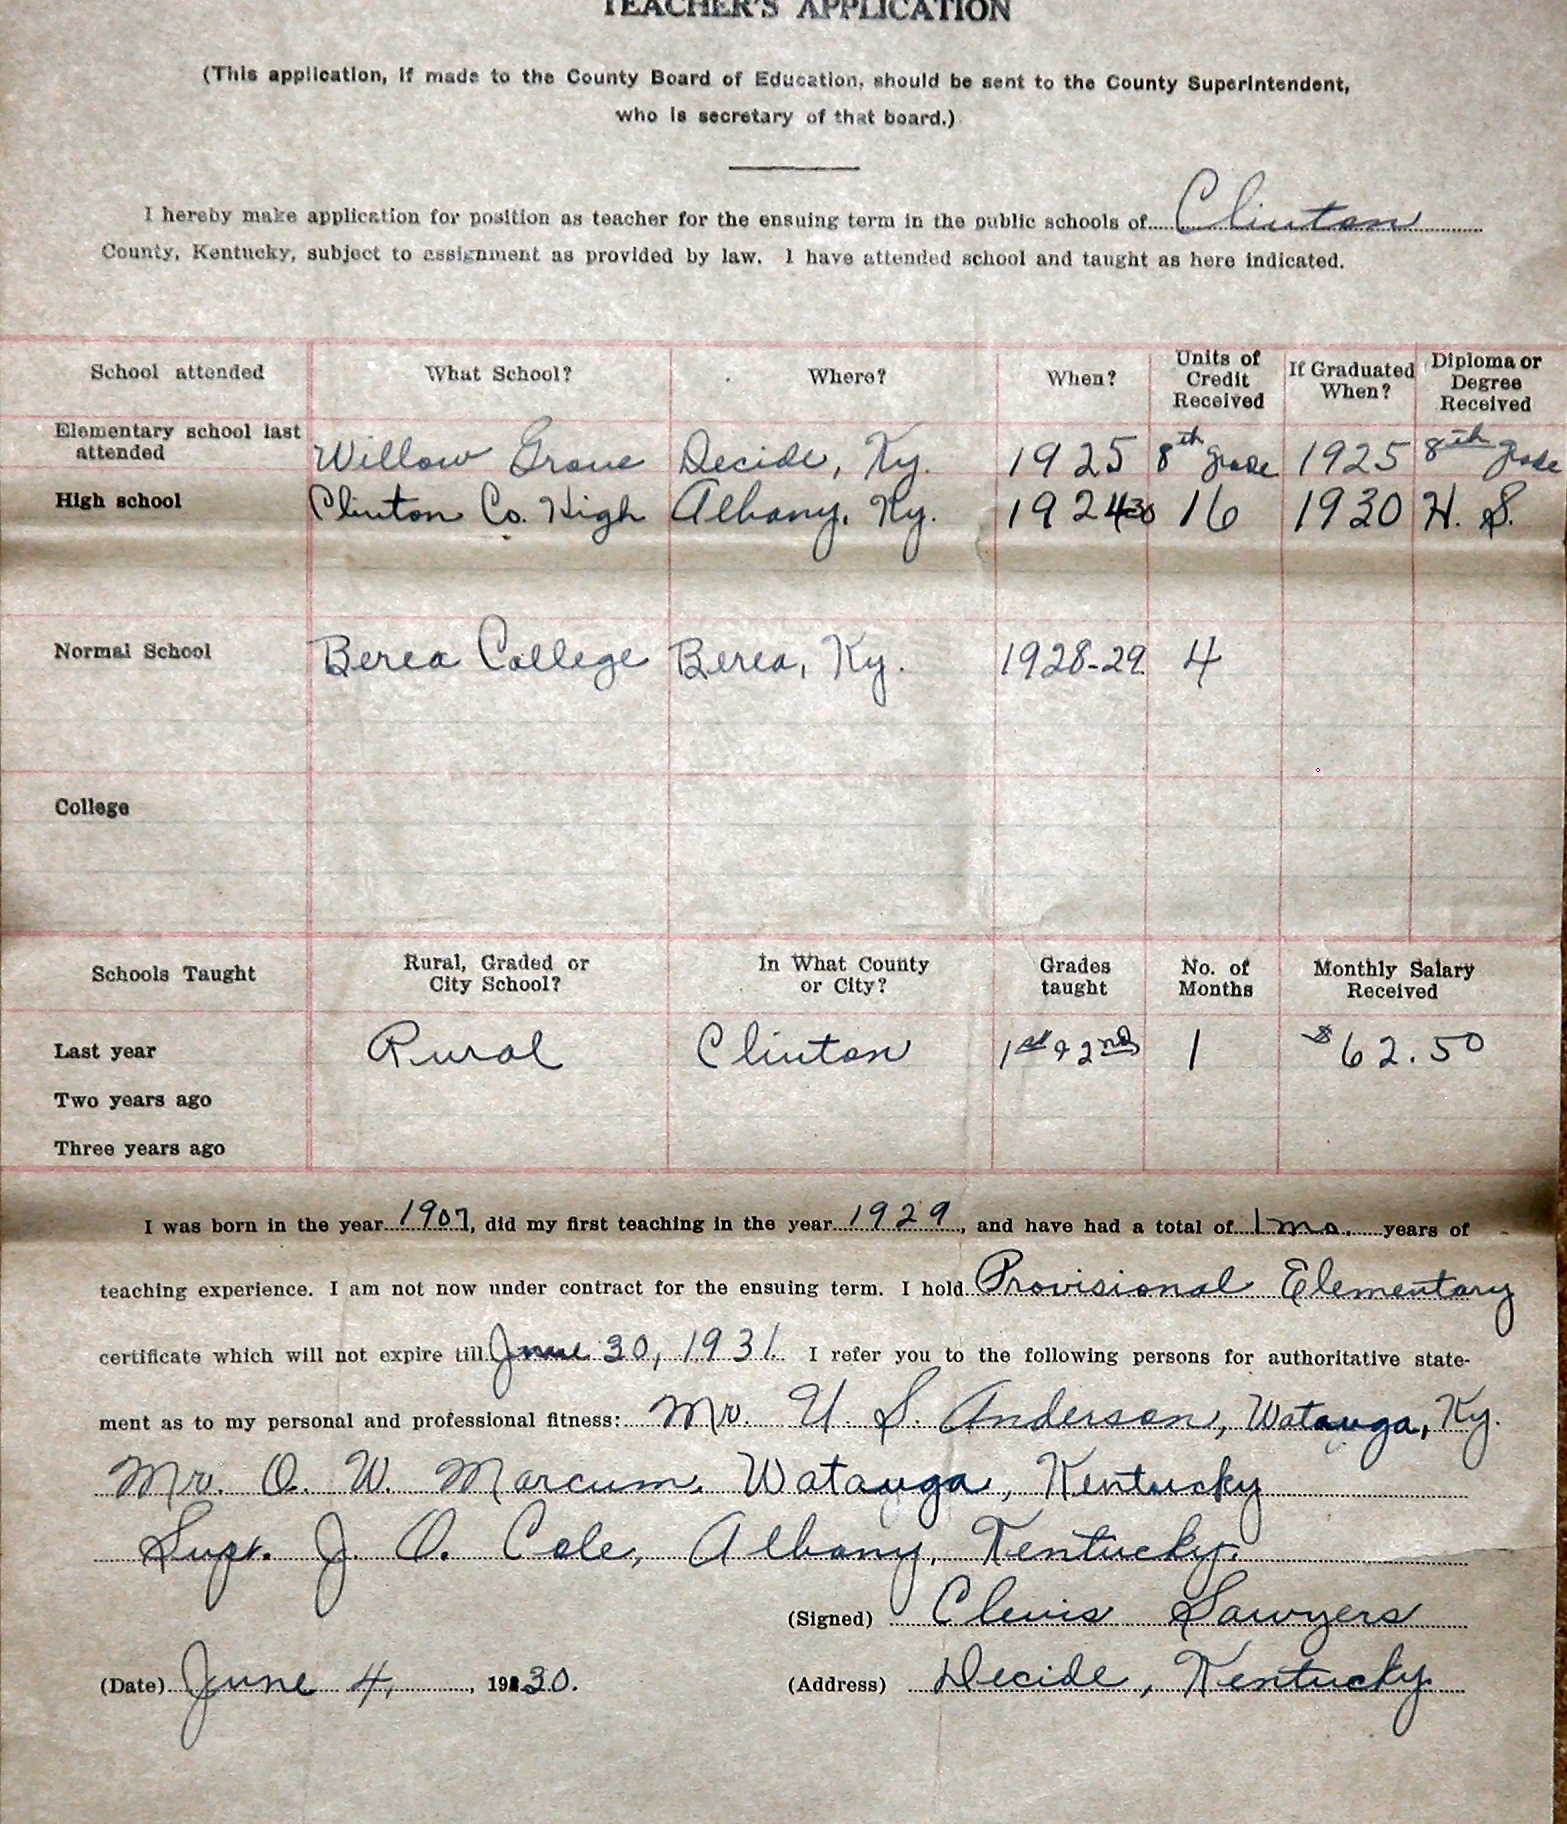 TEACHER'S APPLICATION
(This application, if made to the County Board of Education, should be sent to the County Superintendent,
who is secretary of that board.)
I hereby make application for position as teacher for the ensuing term in the public schools of Clinton
County, Kentucky, subject to assignment as provided by law. I have attended school and taught as here indicated.
School attended What School? Where? When? Units of Credit Received If Graduated When? Diploma or Degree Received
Elementary school last attended Willow Grove Decide, Ky. 1925 8th grade 1925 8th grade
High school Clinton Co. High Albany, Ky. 16 1930 H. S.
Normal School Berea College Berea, Ky. 1928-29 4
College
Schools Taught Rural, Graded or City School? In What County or City? Grades taught No. of Months Monthly Salary Received
Last year Rural Clinton 1st & 2nd 1 $62.50
Two years ago
Three years ago
I was born in the year 1907, did my first teaching in the year 1929, and have had a total of 1 mo. years of
teaching experience. I am not now under contract for the ensuing term. I hold Provisional Elementary
certificate which will not expire till June 30, 1931. I refer you to the following persons for authoritative state-
ment as to my personal and professional fitness: Mr. U. S. Anderson, Watauga, Ky.
Mr. O. W. Marcum, Watauga, Kentucky
Supt. J. O. Cole, Albany, Kentucky.
(Signed) Clevis Sawyers
(Date) June 4, 1930. (Address) Decide, Kentucky